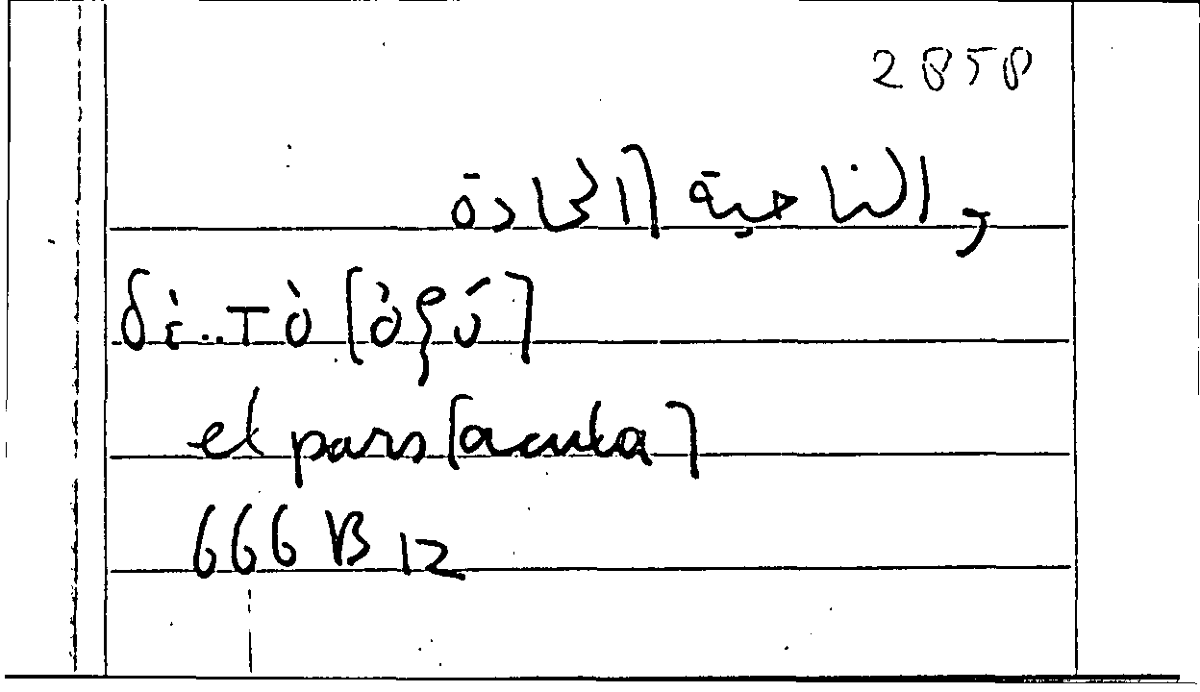 2858
والناحية [الحادة
δὲ..τὸ [ὀξύ]
et pars [acuta]
666 B 12